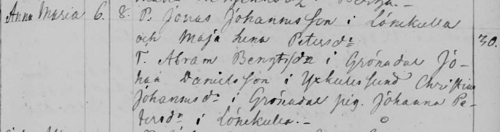 Anna Maria 6. 8. P. Jonas Johansson i Lönekulla
och Maja Lena Petersdr 30.
T. Abram Bengtsdr i Grönadal Jo-
han Danielsson i Yxkullsund Christina
Johannsdr i Grönadal pig. Johanna Pe-
tersdr i Lönekulla.